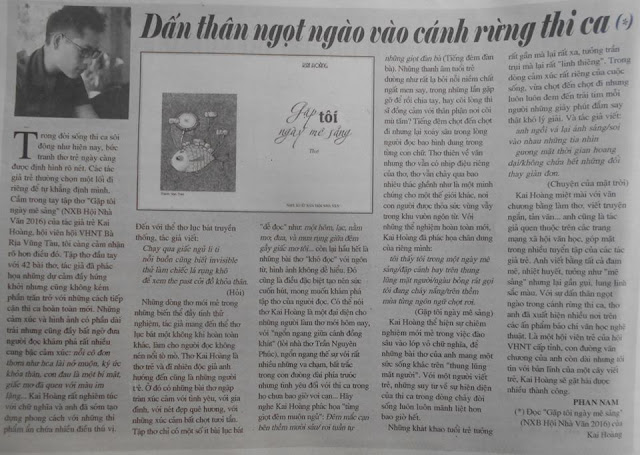 Dấn thân ngọt ngào vào cánh rừng thi ca (*)
Trong đời sống thi ca sôi
động như hiện nay, bức
tranh thơ trẻ ngày càng
được định hình rõ nét. Các tác
giả trẻ thường chọn một lối đi
riêng để tự khẳng định mình.
Cầm trong tay tập thơ "Gặp tôi
ngày mê sảng" (NXB Hội Nhà
Văn 2016) của tác giả trẻ Kai
Hoàng, hội viên hội VHNT Bà
Rịa Vũng Tàu, tôi càng cảm nhận
rõ hơn điều đó. Tập thơ đầu tay
với 42 bài thơ, tác giả đã phác
họa những dự cảm đầy hứng
khởi nhưng cũng không kém
phần trăn trở với những cách tiếp
cận thi ca hoàn toàn mới. Những
cảm xúc và hình ảnh có phần dài
trải nhưng cũng đầy bất ngờ đưa
người đọc khám phá rất nhiều
cung bậc cảm xúc: nỗi cô đơn
thơm như hoa lài nở muộn, ký ức
khỏa thân, con đau là một bí mật,
giấc mơ đã quen với màu im
lặng... Kai Hoàng rất nghiêm túc
với chữ nghĩa và anh đã sớm tạo
dựng phong cách với những thi
phẩm ẩn chứa nhiều điều thú vị.
KAI HOÀNG
Gặp tôi
ngày mê sảng
Thơ
Đến với thể thơ lục bát truyền
thống, tác giả viết:
Chạy qua giấc ngủ li ti
nỗi buồn cũng biết invisible
thử làm chiếc lá rụng khô
để xem the past còn đỗ khỏa thân.
(Hỏi)
Những dòng thơ mới mẻ trong
những biến thể đầy tính thử
nghiệm, tác giả mang đến thể thơ
lục bát một không khí hoàn toàn
khác, làm cho người đọc không
nén nổi tò mò. Thơ Kai Hoàng là
thơ trẻ và dĩ nhiên độc giả anh
hướng đến cũng là những người
trẻ. Ở đó có những bài thơ ngập
tràn xúc cảm với tình yêu, với gia
đình, với nét đẹp quê hương, với
những xúc cảm bất chợt tươi tắn.
Tập thơ chỉ có một số ít bài lục bát
"dễ đọc" như: một hôm, lạc, nằm
mơ, đưa, và mun trong giữa đêm
gãy giấc mơ tôi... còn lại hầu hết là
những bài thơ "khó đọc" với ngôn
từ, hình ảnh không dễ hiểu. Đó
cũng là điều đặc biệt tạo nên sức
cuốn hút, mong muốn khám phá
tập thơ của người đọc. Có thể nói
thơ Kai Hoàng là một đại diện cho
những người làm thơ mới hôm nay,
với "ngôn ngang giữa cánh đồng
khát" (lời nhà thơ Trần Nguyên
Phúc), ngổn ngang thế sự với rất
nhiều những va chạm, bất trắc
trong con đường dài phía trước
nhưng tình yêu đối với thi ca trong
họ chưa bao giờ vơi cạn... Hãy
nghe Kai Hoàng phúc họa "từng
giọt đêm muốn ngã": Đêm mắc cạn
bên thềm muối sâu rơi tuần tự
những giọt đàn bà (Tiếng đêm đàn
bà). Những thanh âm tuổi trẻ
dường như rất lạ bởi nỗi niềm chất
ngất men say, trong những lần gặp
gỡ để rồi chia tay, hay cõi lòng thi
sĩ đồng cảm với thân phận nơi cõi
mù tăm? Tiếng đêm chợt đến chợt
đi nhưng lại xoáy sâu trong lòng
người đọc bao hình dung trong
từng con chữ. Thơ thiên về văn
nhưng thơ vẫn có nhịp điệu riêng
của thơ, thơ vẫn chảy qua bao
nhiêu thác ghềnh như là một minh
chứng cho một thế giới khác, nơi
con người được thỏa sức vùng vẫy
trong khu vườn ngôn từ. Với những
thể nghiệm hoàn toàn mới,
Kai Hoàng đã phúc họa chân dung
của riêng mình:
tôi thấy tôi trong một ngày mê
sảng/đập cánh bay trên thung
lũng mặt người/ngàu bông rất gợi
đá đang chảy nắng/trôn thềm
mùa từng ngón ngữ chợt rơi.
(Gặp tôi ngày mê sảng)
Kai Hoàng thể hiện sự chiêm
nghiệm mới mẻ trong việc đào
sâu vào lớp vỏ chữ nghĩa, để
những bài thơ của anh mang một
sức sống khác trên "thung lũng
mặt người". Với một người viết
trẻ, những suy tư về sự hiện diện
của thi ca trong dòng chảy đời
sống luôn luôn mãnh liệt hơn
bao giờ hết.
Những khát khao tuổi trẻ tuông
rất gần mà lại rất xa, tưởng trần
trụi mà lại rất "linh thiêng". Trong
dòng cảm xúc rất riêng của cuộc
sống, vừa chợt đến chợt đi nhưng
luôn luôn đem đến trái tim mỗi
người những giây phút đắm say
thật khó lý giải. Và tác giả viết:
anh ngồi vá lại ánh sáng/soi
vào nhau những tia nhìn
gương mặt thời gian hoang
dại/không chứa hết những đổi
thay giản đơn.
(Chuyện của mặt trời)
Kai Hoàng miệt mài với văn
chương bằng làm thơ, viết truyện
ngắn, tản văn... anh cũng là tác
giả quen thuộc trên các trang
mạng xã hội văn học, góp mặt
trong nhiều tuyển tập của các tác
giả trẻ. Anh viết bằng tất cả đam
mê, nhiệt huyết, tưởng như "mê
sảng" nhưng lại gần gụi, lung linh
sắc màu. Với sự dấn thân ngọt
ngào trong cánh rừng thi ca, thơ
anh đã xuất hiện nhiều nơi trên
các ấn phẩm báo chí văn học nghệ
thuật. Là một hội viên trẻ của hội
VHNT cấp tỉnh, con đường văn
chương của anh còn dài nhưng tôi
tin với bản lĩnh của một cây viết
trẻ, Kai Hoàng sẽ gặt hái được
nhiều thành công.
PHAN NAM
(*) Đọc "Gặp tôi ngày mê sảng"
(NXB Hội Nhà Văn 2016) của
Kai Hoàng